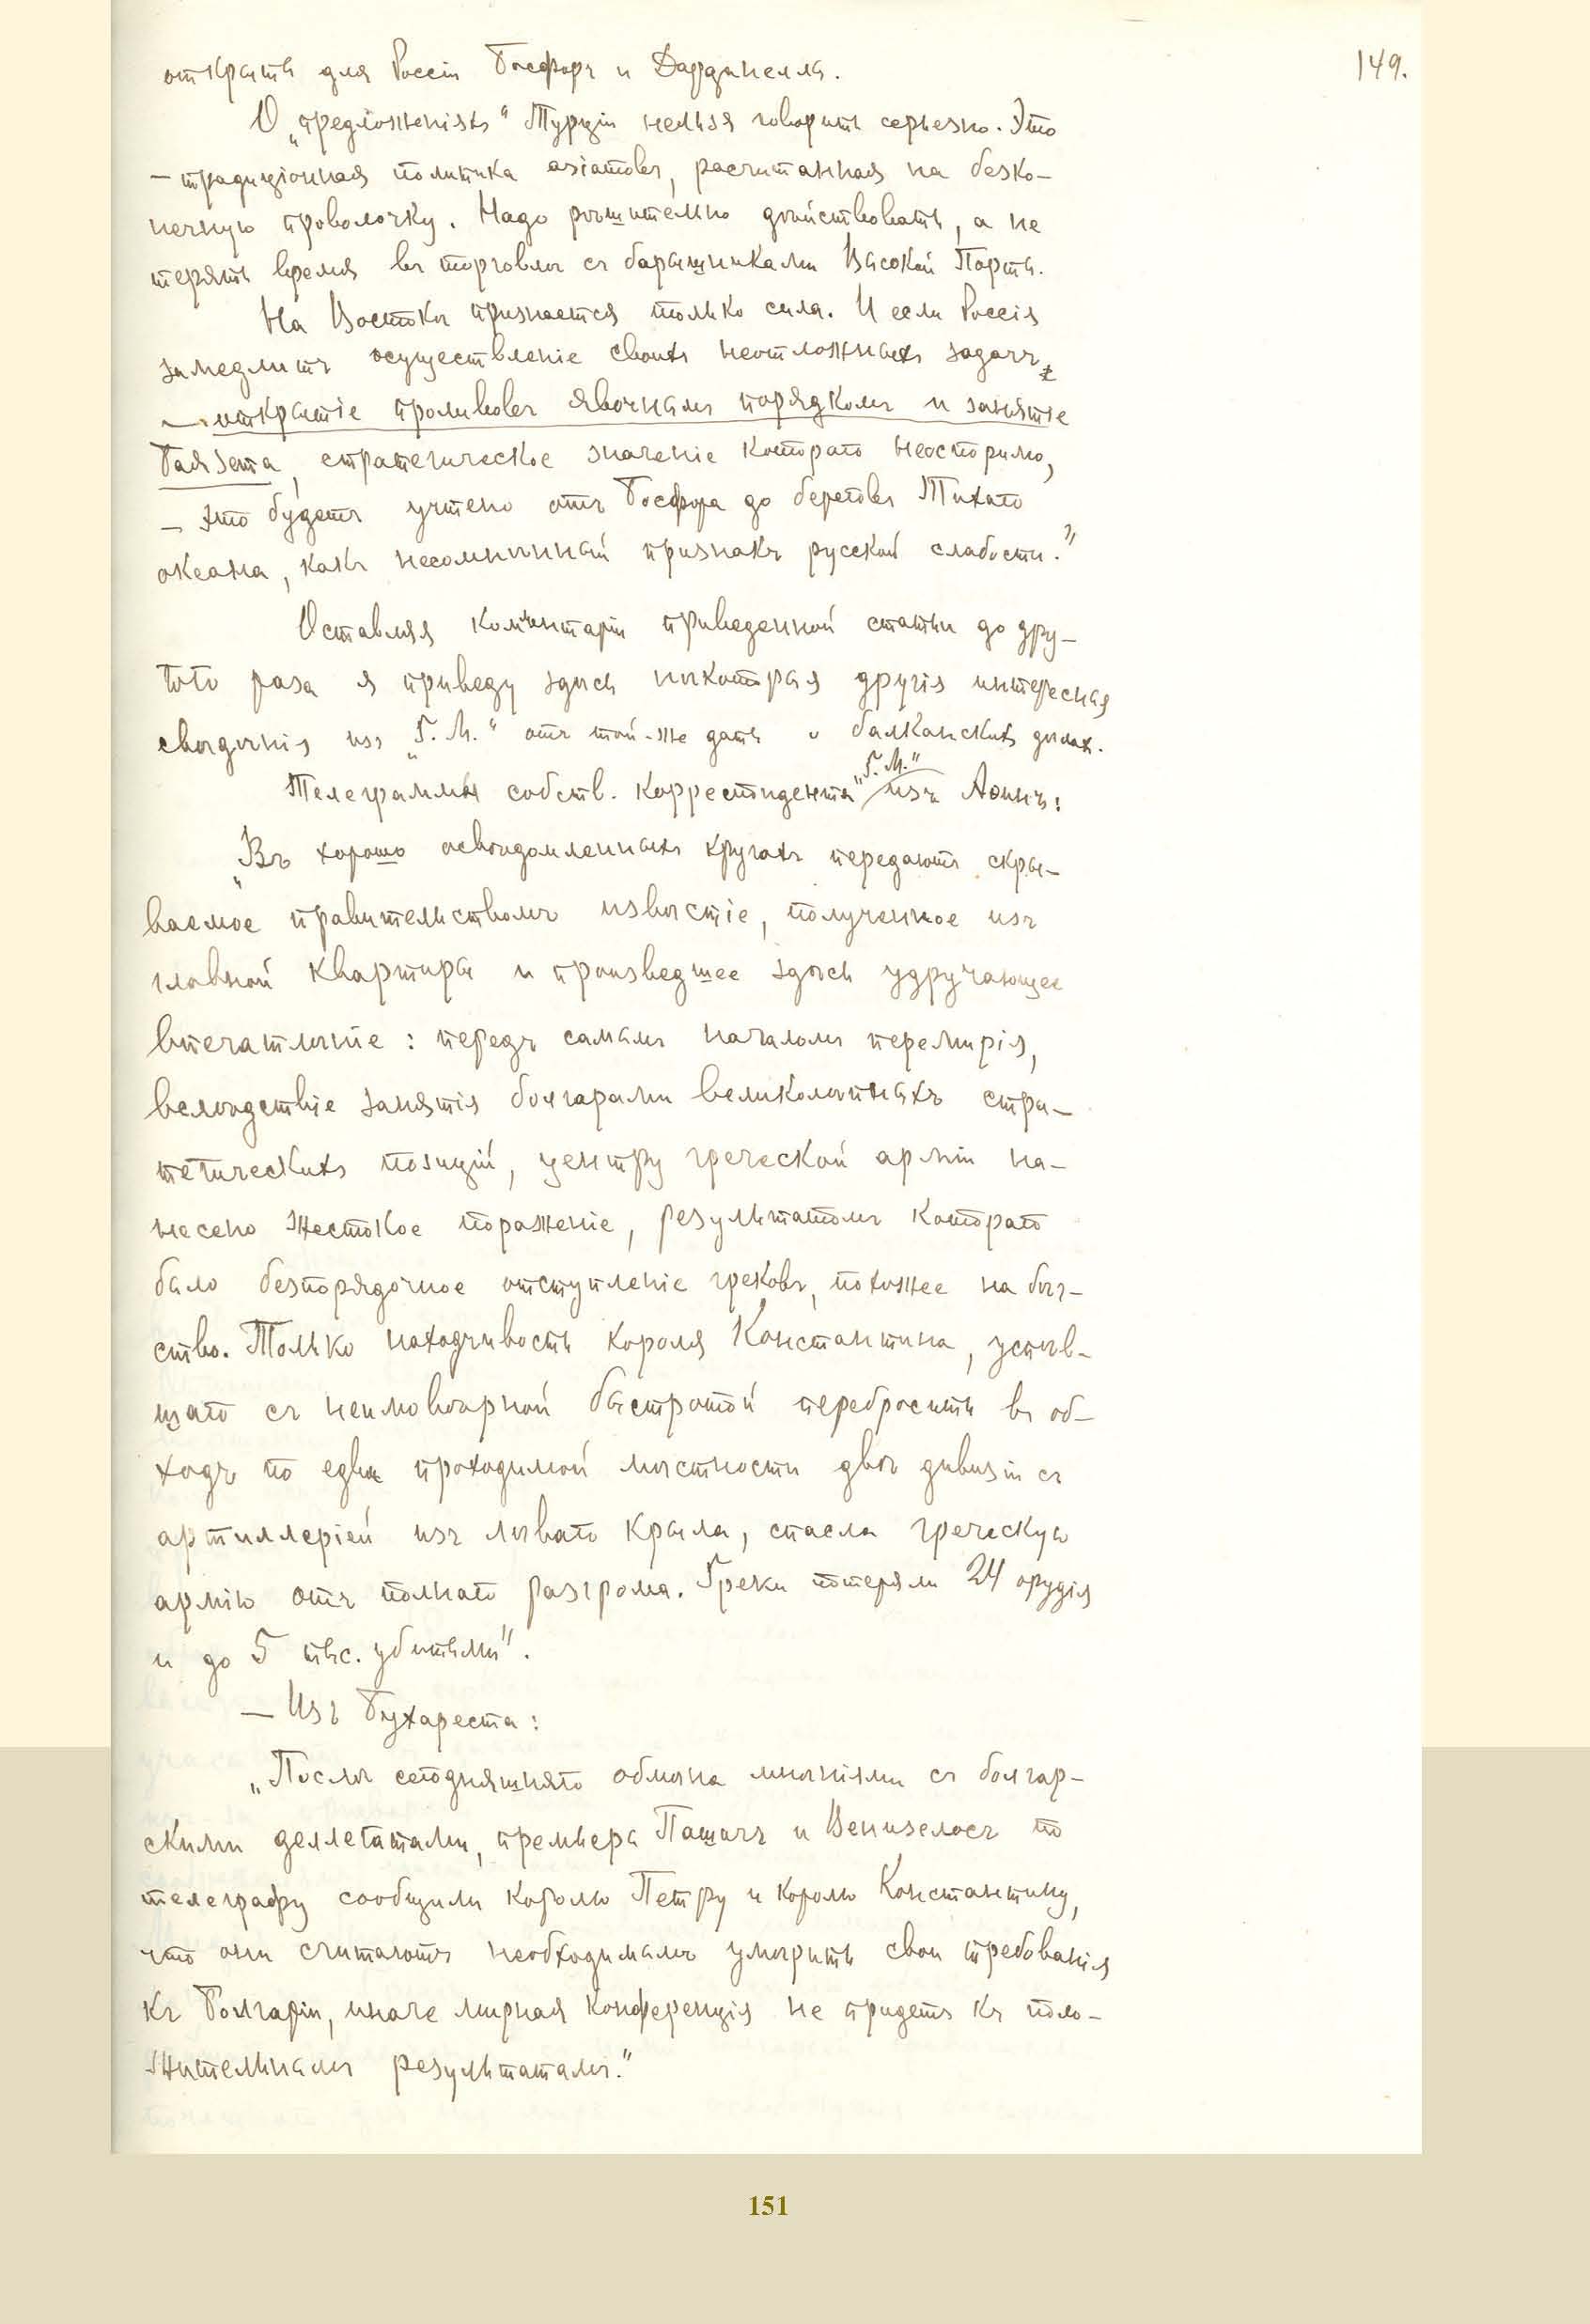 149.
открыть для Россіи Босфоръ и Дарданеллы.
О „предложеніяхъ" Турціи нельзя говорить серьезно. Это
— традиціонная политика азіатовъ, расчитанная на безко-
нечную проволочку. Надо рѣшительно дѣйствовать, а не
терять время въ торговлѣ съ барышниками Высокой Порты.
На Востокѣ признается только сила. И если Россія
замедлитъ осуществленіе своихъ неотложныхъ задачъ
— открытіе проливовъ явочнымъ порядкомъ и занятіе
Баязета, стратегическое значеніе котораго неоспоримо,
— это будетъ учтено отъ Босфора до береговъ Тихаго
океана, какъ несомнѣнный признакъ русской слабости."
Оставляя комментаріи приведенной статьи до дру-
гого раза я приведу здѣсь нѣкоторыя другія интересныя
свѣдѣнія изъ „Г. М." отъ той-же даты о балканскихъ дѣлах.
Телеграммы собств. корреспондента „Г. М." изъ Аѳинъ:
„Въ хорошо освѣдомленныхъ кругахъ передаютъ скры-
ваемое правительствомъ извѣстіе, полученное изъ
главной квартиры и произведшее здѣсь удручающее
впечатлѣніе: передъ самымъ началомъ перемирія,
вслѣдствіе занятія болгарами великолѣпныхъ стра-
тегическихъ позицій, центру греческой арміи на-
несено жестокое пораженіе, результатомъ котораго
было безпорядочное отступленіе грековъ, похожее на бѣг-
ство. Только находчивость короля Константина, успѣв-
шаго съ неимовѣрной быстротой перебросить въ об-
ходъ по едва проходимой мѣстности двѣ дивизіи съ
артиллеріей изъ лѣваго крыла, спасла греческую
армію отъ полнаго разгрома. Греки потеряли 24 орудія
и до 5 тыс. убитыми".
— Изъ Бухареста:
„Послѣ сегодняшняго обмѣна мнѣніями съ болгар-
скими делегатами, премьеры Пашичъ и Венизелосъ по
телеграфу сообщили королю Петру и королю Константину,
что они считаютъ необходимымъ умѣрить свои требованія
къ Болгаріи, иначе мирная конференція не придетъ къ поло-
жительнымъ результатамъ."
151